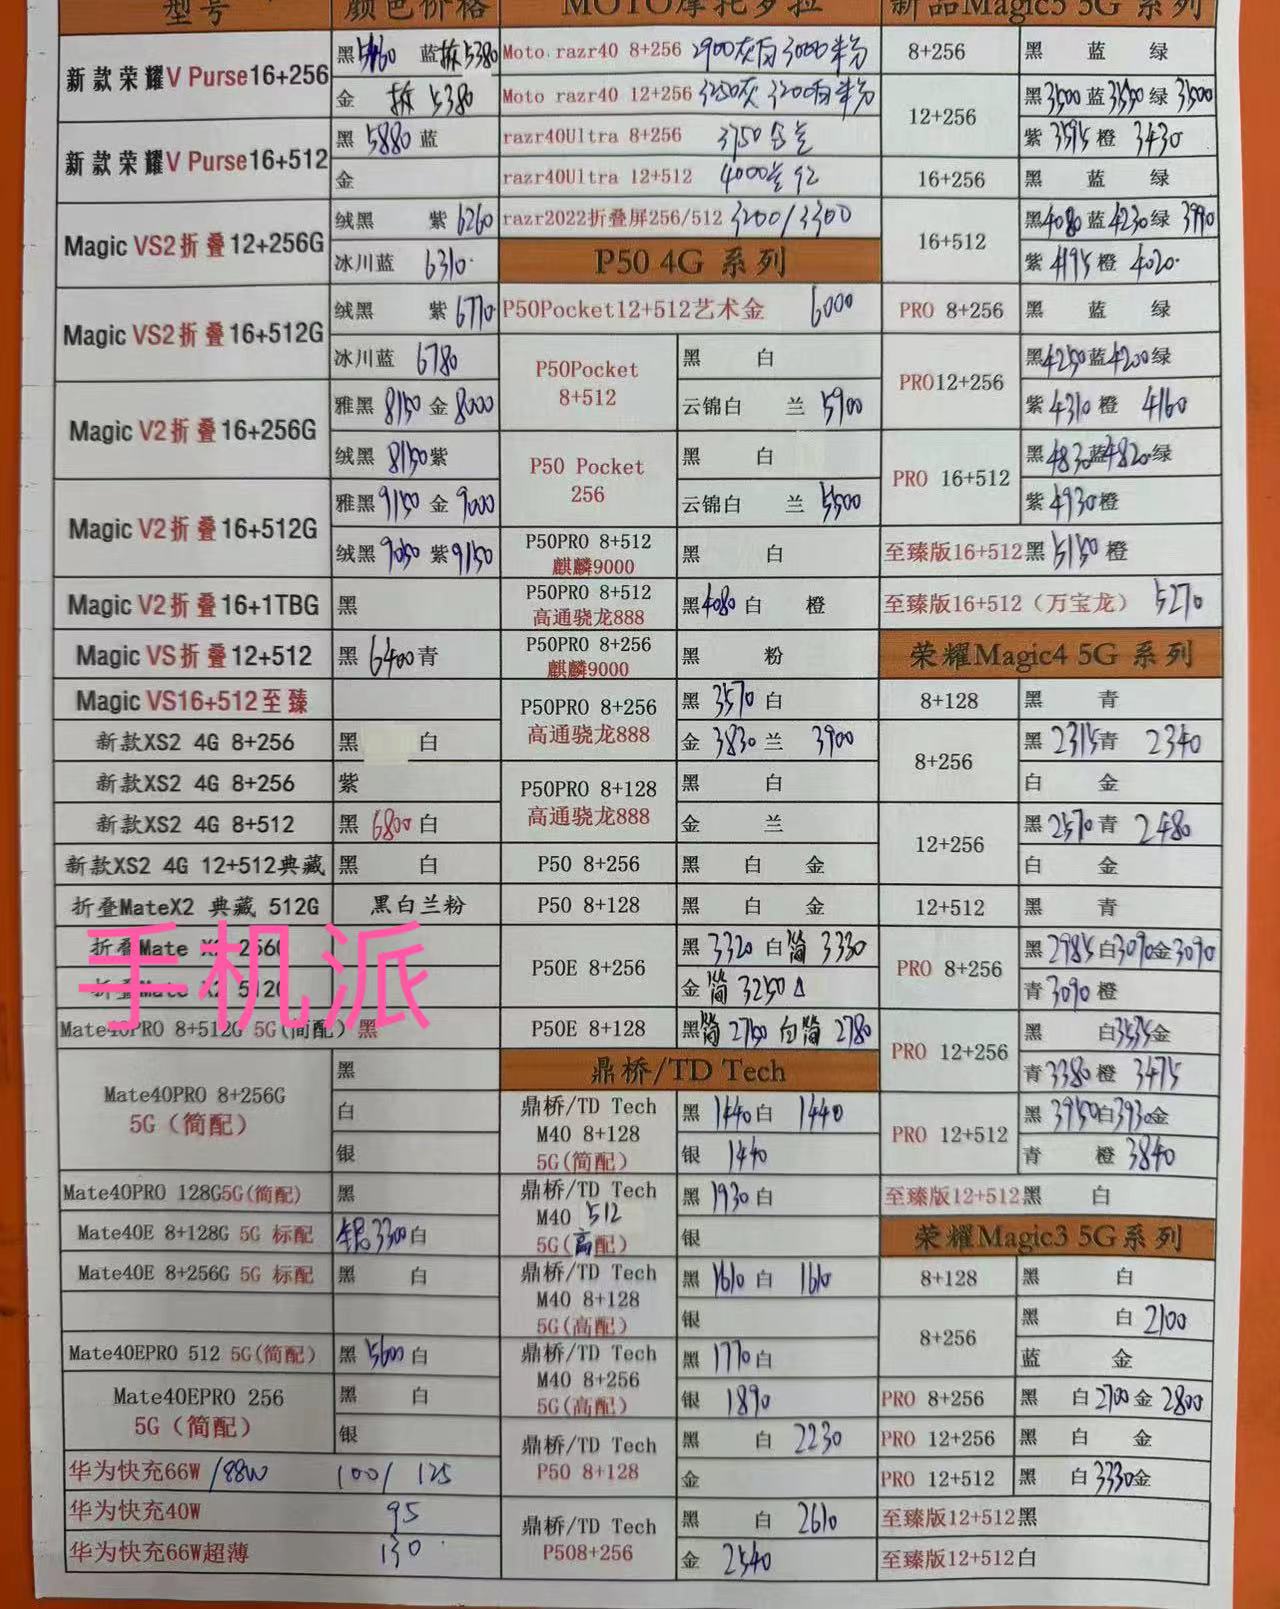 型号 颜色价格 MOTO摩托罗拉 新品Magic5 5G 系列
新款荣耀V Purse16+256 黑5160 蓝拆5380
金 拆 5380
新款荣耀V Purse16+512 黑 5880 蓝
金
Magic VS2折叠12+256G 绒黑 紫 6260
冰川蓝 6310
Magic VS2折叠16+512G 绒黑 紫 6770
冰川蓝 6780
Magic V2折叠16+256G 雅黑 8150 金 8000
绒黑 8150 紫
Magic V2折叠16+512G 雅黑 9150 金 9000
绒黑 9050 紫 9150
Magic V2折叠16+1TBG 黑
Magic VS折叠12+512 黑 6400 青
Magic VS16+512至臻
新款XS2 4G 8+256 黑 白
新款XS2 4G 8+256 紫
新款XS2 4G 8+512 黑 6800 白
新款XS2 4G 12+512典藏 黑 白
折叠MateX2 典藏 512G 黑白兰粉
折叠Mate X2 256G
折叠Mate X2 512G
手机派
Mate40PRO 8+512G 5G(简配) 黑
Mate40PRO 8+256G
5G(简配)
黑
白
银
Mate40PRO 128G5G(简配) 黑
Mate40E 8+128G 5G 标配 银3300白
Mate40E 8+256G 5G 标配 黑 白
Mate40EPRO 512 5G(简配) 黑 5600 白
Mate40EPRO 256
5G(简配)
黑 白
银
华为快充66W /88W 100/ 125
华为快充40W 95
华为快充66W超薄 130
Moto razr40 8+256 2900灰白 3000 米粉
Moto razr40 12+256 3250灰 3200白米粉
razr40Ultra 8+256 3750
razr40Ultra 12+512 4000
razr2022折叠屏256/512 3200/3300
P50 4G 系列
P50Pocket12+512艺术金 6000
P50Pocket
8+512
黑 白
云锦白 兰 5900
P50 Pocket
256
黑 白
云锦白 兰 5500
P50PRO 8+512
麒麟9000
黑 白
P50PRO 8+512
高通骁龙888
黑4080 白 橙
P50PRO 8+256
麒麟9000
黑 粉
P50PRO 8+256
高通骁龙888
黑 3570 白
金 3830 兰 3900
P50PRO 8+128
高通骁龙888
黑 白
金 兰
P50 8+256 黑 白 金
P50 8+128 黑 白 金
P50E 8+256 黑 3320 白简 3330
金简 3250 Δ
P50E 8+128 黑简 2750 白简 2780
鼎桥/TD Tech
鼎桥/TD Tech
M40 8+128
5G(简配)
黑 1440 白 1440
银 1440
鼎桥/TD Tech
M40 512
5G(高配)
黑 1930 白
银
鼎桥/TD Tech
M40 8+128
5G(高配)
黑 1610 白 1610
银
鼎桥/TD Tech
M40 8+256
5G(高配)
黑 1770 白
银 1890
鼎桥/TD Tech
P50 8+128
黑 白 2230
金
鼎桥/TD Tech
P508+256
黑 白 2610
金 2540
8+256 黑 蓝 绿
12+256 黑3500 蓝3550 绿 3500
紫 3595 橙 3430
16+256 黑 蓝 绿
16+512 黑4080 蓝4230 绿 3990
紫 4195 橙 4020
PRO 8+256 黑 蓝 绿
PRO12+256 黑4250蓝4200绿
紫 4310 橙 4160
PRO 16+512 黑4830蓝4820绿
紫4930橙
至臻版16+512黑 5150 橙
至臻版16+512(万宝龙) 5270
荣耀Magic4 5G 系列
8+128 黑 青
8+256 黑 2315青 2340
白 金
12+256 黑 2570青 2480
白 金
12+512 黑 青
PRO 8+256 黑 2985白3090金3090
青3090 橙
PRO 12+256 黑 白3535金
青3380 橙 3475
PRO 12+512 黑 3950白3930金
青 橙 3840
至臻版12+512黑 白
荣耀Magic3 5G系列
8+128 黑 白
8+256 黑 白 2100
蓝 金
PRO 8+256 黑 白2700 金 2800
PRO 12+256 黑 白 金
PRO 12+512 黑 白 3330金
至臻版12+512黑
至臻版12+512白